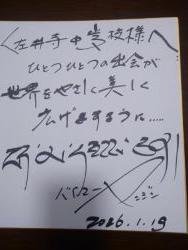 左井寺中学校様へ
ひとつひとつの出会が
世界をやさしく美しく
広げますように.....
バイマーヤンジン
2026.1.19